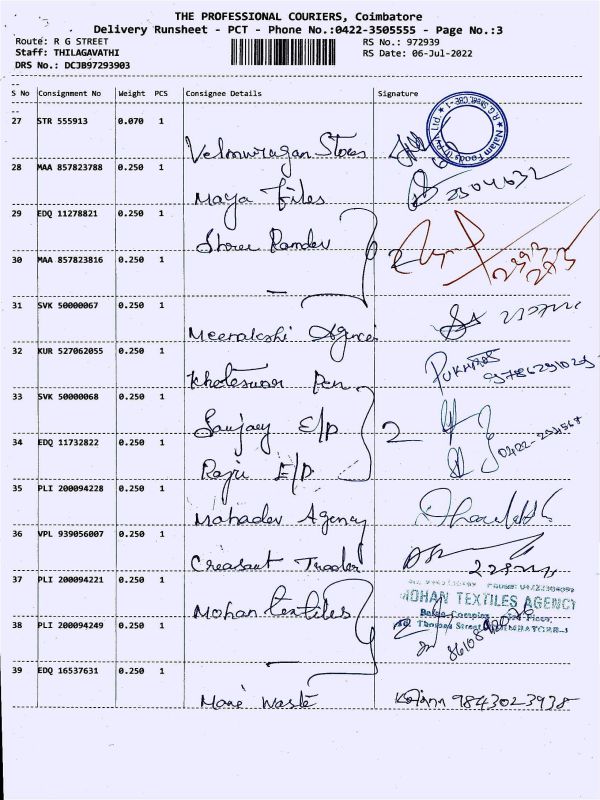 THE PROFESSIONAL COURIERS, Coimbatore
Delivery Runsheet - PCT - Phone No.:0422-3505555 - Page No.:3
Route: R G STREET RS No.: 972939
Staff: THILAGAVATHI RS Date: 06-Jul-2022
DRS No.: DCJB97293903
S No Consignment No Weight PCS Consignee Details Signature
27 STR 555913 0.070 1
Velmurugan Stores
28 MAA 857823788 0.250 1
Maya files 2304632
29 EDQ 11278821 0.250 1
Shree Ramdev 2
30 MAA 857823816 0.250 1
—
31 SVK 50000067 0.250 1
Meenakshi Agencies
32 KUR 527062055 0.250 1
Khateswar Pen
33 SVK 50000068 0.250 1
Sanjay E/P 2
34 EDQ 11732822 0.250 1
Raju E/P
35 PLI 200094228 0.250 1
Mahadev Agency
36 VPL 939056007 0.250 1
Creasant Trader
37 PLI 200094221 0.250 1
MOHAN TEXTILES AGENCY
Mohan textiles
38 PLI 200094249 0.250 1
—
39 EDQ 16537631 0.250 1
Mani Waste 9843023938